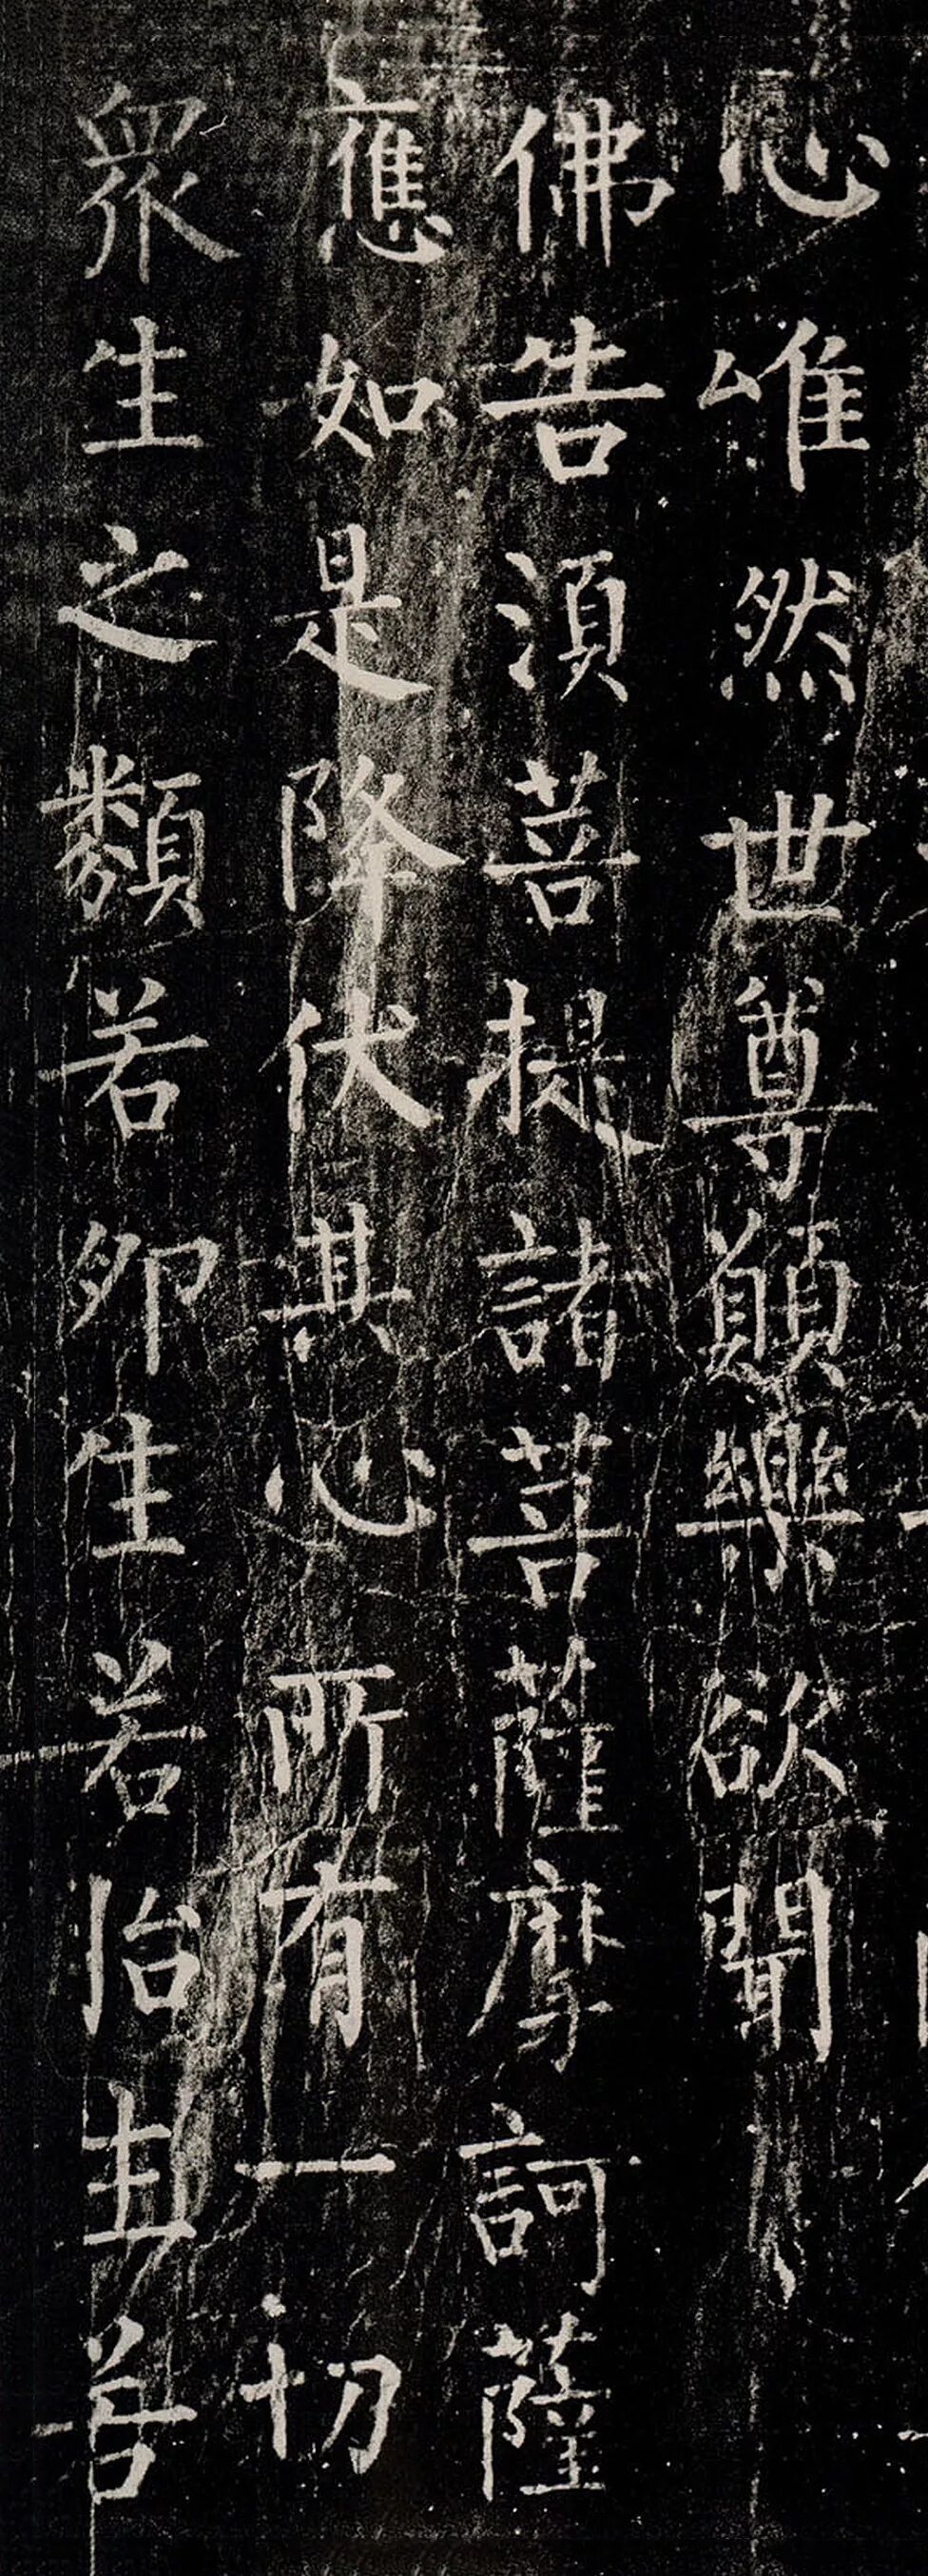 心唯然世尊願樂欲聞
佛告須菩提諸菩薩摩訶薩
應如是降伏其心所有一切
眾生之類若卵生若胎生若